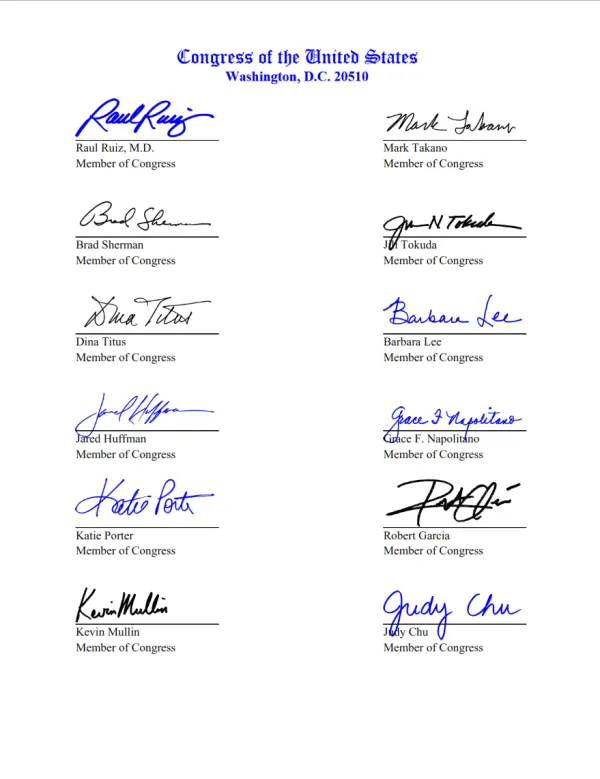 Congress of the United States
Washington, D.C. 20510
Raul Ruiz
Mark Takano
Raul Ruiz, M.D.
Mark Takano
Member of Congress
Member of Congress
Brad Sherman
Jill N Tokuda
Brad Sherman
Jill Tokuda
Member of Congress
Member of Congress
Dina Titus
Barbara Lee
Dina Titus
Barbara Lee
Member of Congress
Member of Congress
Jared Huffman
Grace F Napolitano
Jared Huffman
Grace F. Napolitano
Member of Congress
Member of Congress
Katie Porter
Katie Porter
Robert Garcia
Member of Congress
Member of Congress
Kevin Mullin
Judy Chu
Kevin Mullin
Judy Chu
Member of Congress
Member of Congress